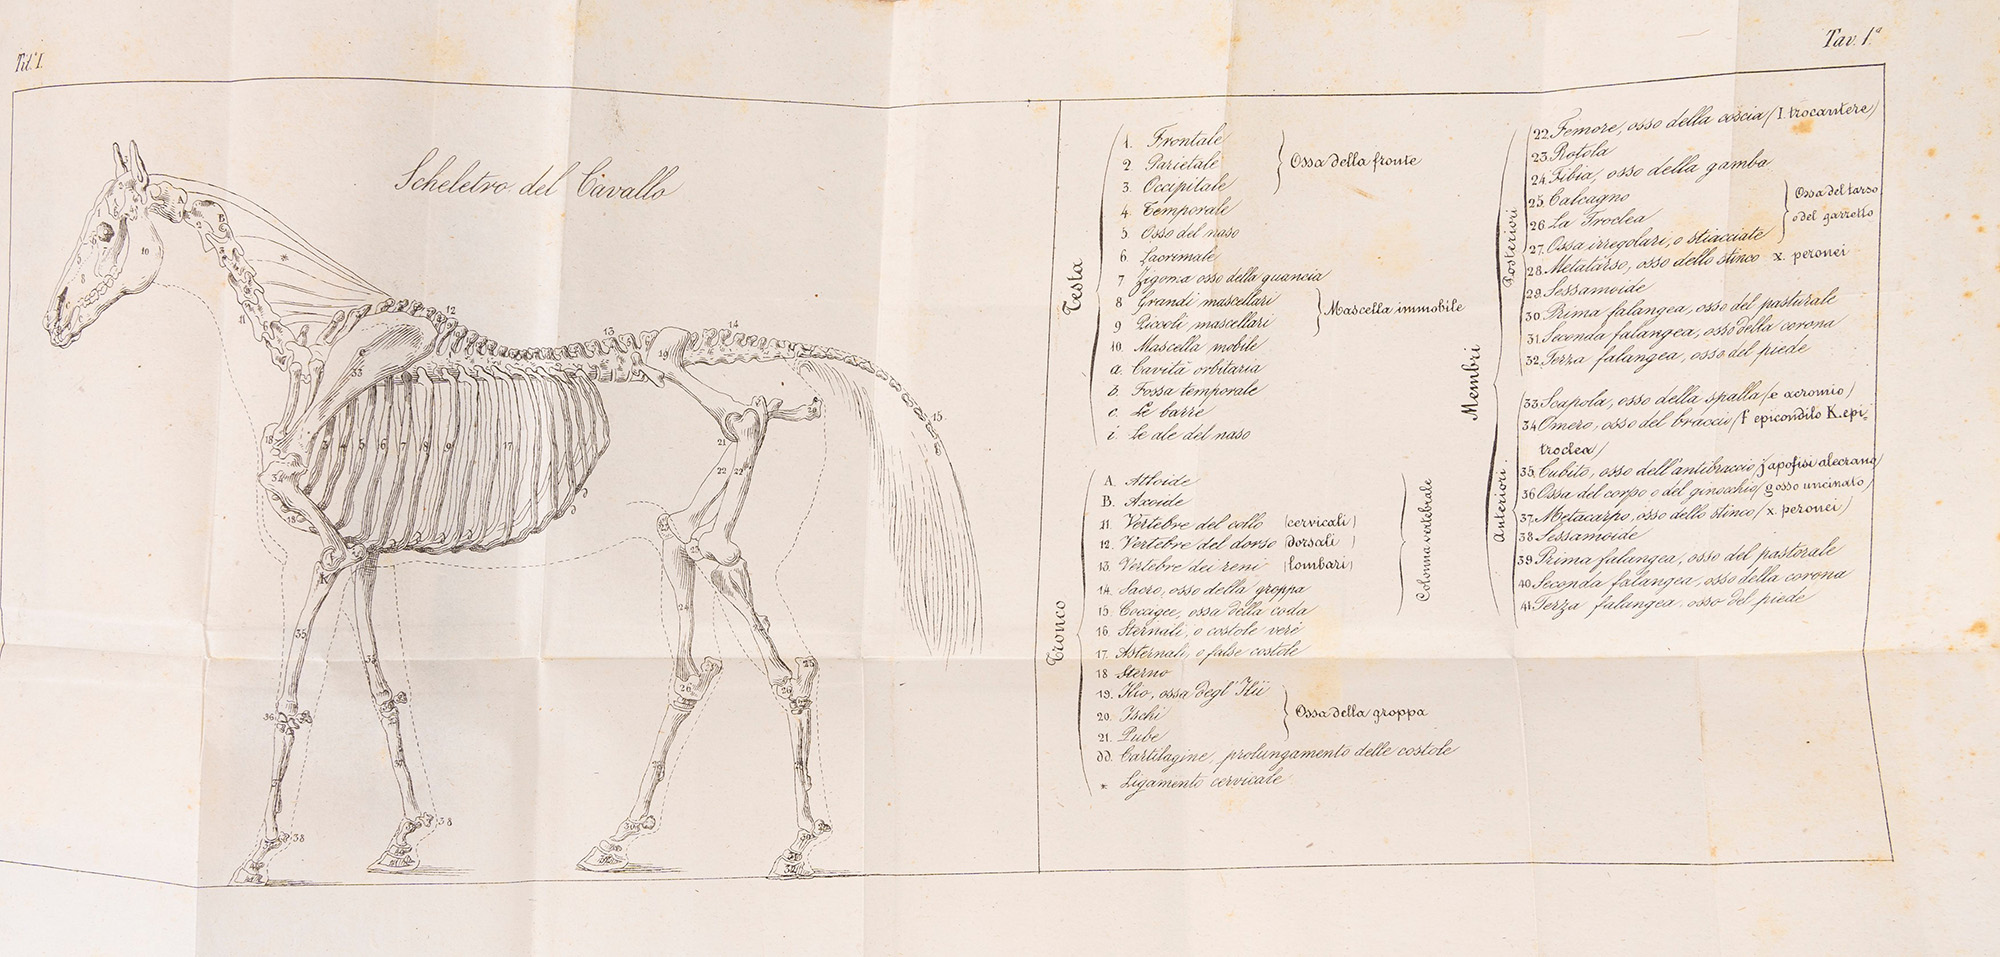 Tit. I.
Tav. I.ª
Scheletro del Cavallo
Testa
1. Frontale
2. Parietale
3. Occipitale
Ossa della fronte
4. Temporale
5. Osso del naso
6. Lacrimale
7 Zigoma osso della guancia
8 Grandi mascellari
9 Piccoli mascellari
Mascella immobile
10. Mascella mobile
a. Cavità orbitaria
b. Fossa temporale
c. Le barre
i. Le ale del naso
Tronco
A. Atloide
B. Axoide
11. Vertebre del collo (cervicali)
12. Vertebre del dorso (dorsali)
13. Vertebre dei reni (lombari)
14. Sacro, osso della groppa
15. Coccigee, ossa della coda
Colonna vertebrale
16. Sternali, o costole veri
17. Asternali, o false costole
18 Sterno
19. Ilio, ossa degl' Ilii
20. Ischi
21. Pube
Ossa della groppa
dd. Cartilagine, prolungamento delle costole
* Ligamento cervicale
Membri
Posteriori
22. Femore, osso della coscia (I. trocantere)
23. Rotola
24. Tibia, osso della gamba
25. Calcagno
26. La Troclea
27. Ossa irregolari, o stiacciate
Ossa del tarso
o del garretto
28. Metatarso, osso dello stinco x. peronei
29. Sessamoide
30. Prima falangea, osso del pasturale
31. Seconda falangea, osso della corona
32. Terza falangea, osso del piede
Anteriori.
33. Scapola, osso della spalla (e acromio)
34. Omero, osso del braccio (f epicondilo K. epi=
troclea)
35. Cubito, osso dell'antibraccio j apofisi alecrano)
36 Ossa del corpo o del ginocchio (g osso uncinato)
37. Metacarpo, osso dello stinco (x. peronei)
38 Sessamoide
39 Prima falangea, osso del pastorale
40. Seconda falangea, osso della corona
41. Terza falangea, osso del piede